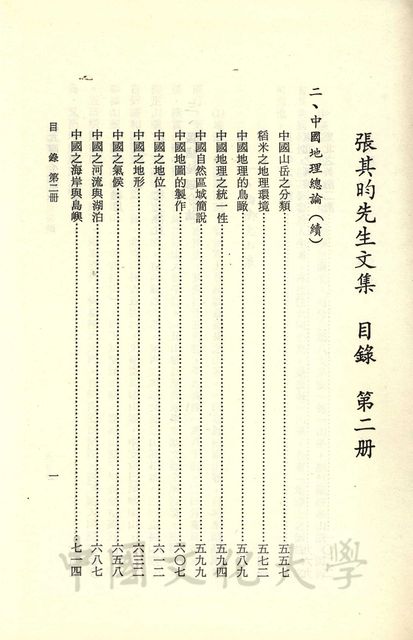 張其昀先生文集　目錄　第二册
二、中國地理總論（續）
中國山岳之分類⋯⋯五五七
稻米之地理環境⋯⋯五七二
中國地理的鳥瞰⋯⋯五八九
中國地理之統一性⋯⋯五九四
中國自然區域簡說⋯⋯五九九
中國地圖的製作⋯⋯六〇七
中國之地位⋯⋯六一二
中國之地形⋯⋯六三二
中國之氣候⋯⋯六五八
中國之河流與湖泊⋯⋯六八七
中國之海岸與島嶼⋯⋯七一四
目錄　第二册
一
中國文化大學